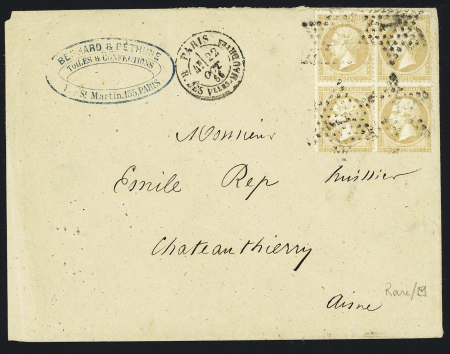 BERNARD & BÉTHUNE
TOILES & CONFECTIONS
St Martin, 155, PARIS
PARIS
OCT
66
Monsieur
Emile Rep huissier
Chateauthierry
Aisne
Rare/